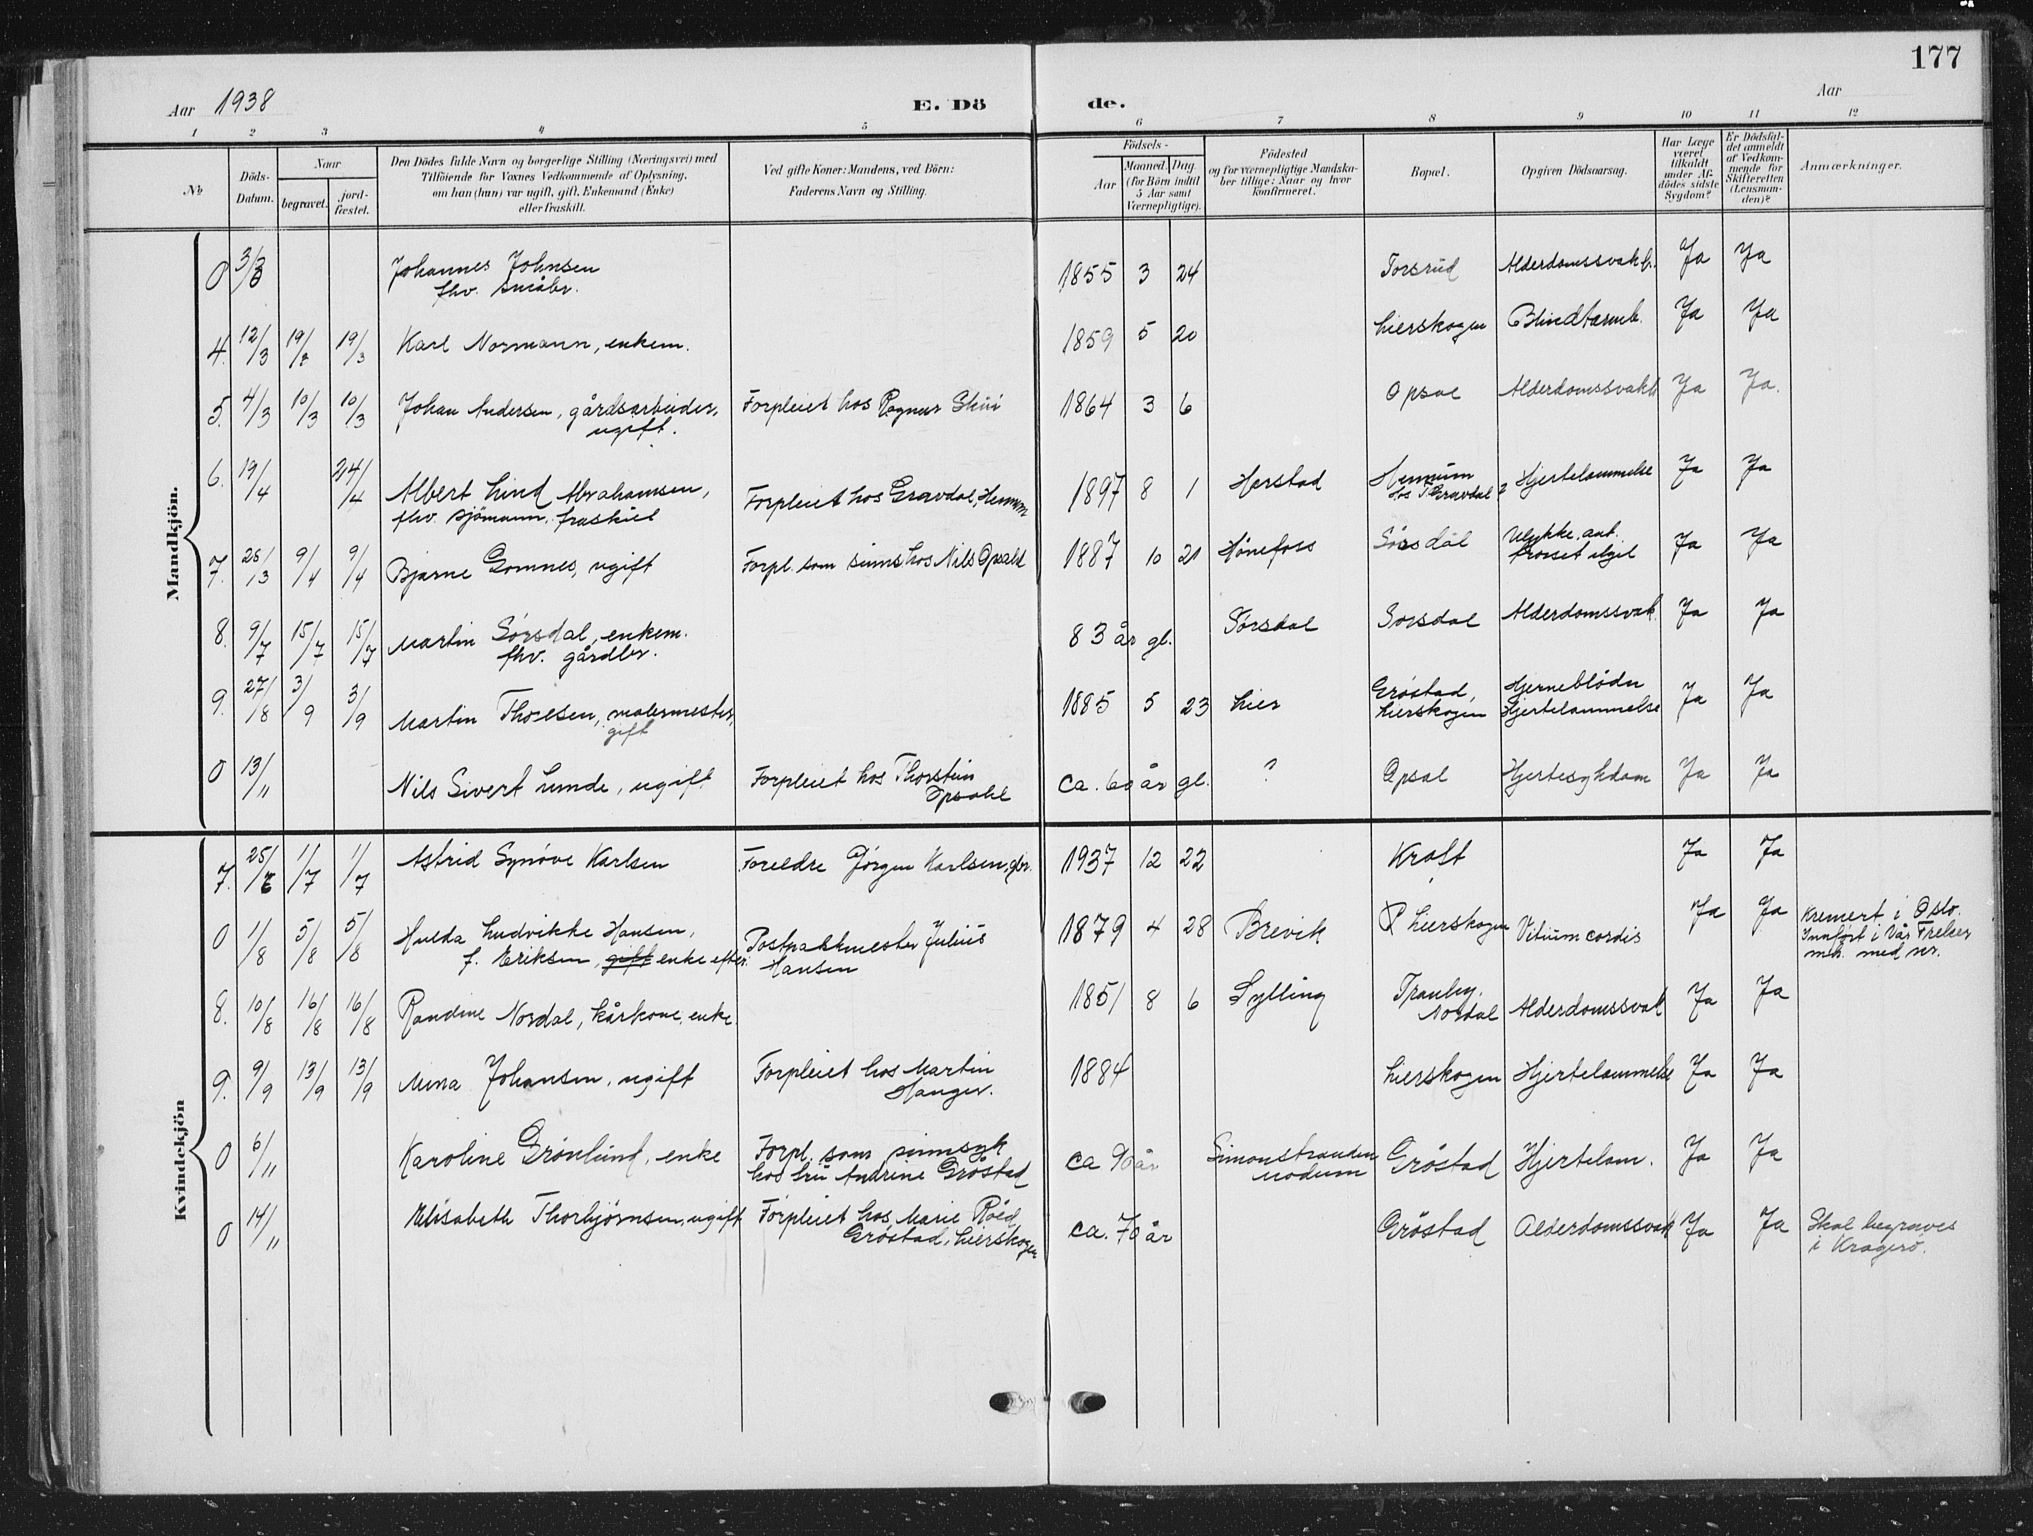 177
Aar 1938 E. Dö de. Aar
1 2 3 4 5 6 7 8 9 10 11 12
No Döds-Datum. Naar begravet. jord-fæstet. Den Dödes fulde Navn og borgerlige Stilling (Næringsvei) med Tilföiende for Voxnes Vedkommende af Oplysning, om han (hun) var ugift, gift, Enkemand (Enke) eller fraskilt. Ved gifte Koner: Mandens, ved Börn: Faderens Navn og Stilling. Födsels- Aar Maaned. Dag. (for Börn indtil 5 Aar samt Værnepligtige). Födested og for værnepligtige Mandskaber tillige: Naar og hvor konfirmeret. Bopæl. Opgiven Dödsaarsag. Har Læge været tilkaldt under Afdödes sidste Sygdom? Er Dödsfaldet anmeldt af Vedkommende for Skifteretten (Lensmanden)? Anmærkninger.
Mandkjön.
0 3/3 Johannes Johnsen 1855 3 24 Torsrud Alderdomssvakh. Ja Ja
fhv. småbr.
4. 12/3 19/3 19/3 Karl Normann, enkem. 1859 5 20 Lierskogen Blindtarmb. Ja Ja
5. 4/3 10/3 10/3 Johan Andersen, gårdsarbeider, Forpleiet hos Ragnar Skui 1864 3 6 Opsal Alderdomssvakh Ja Ja.
ugift.
6. 19/4 24/4 Albert Lind Abrahamsen, Forpleiet hos Gravdal, Hennum 1897 8 1 Harstad Hennum Hjertelammelse Ja Ja
fhv. sjömann, fraskilt hos Gravdal
7. 26/3 9/4 9/4 Bjarne Gomnes, ugift Forpl. som sinns hos Nils Opsahl 1887 10 21 Hönefoss Sørsdal Ulykke, ant. Ja Ja
8. 9/7 15/7 15/7 Martin Sørsdal, enkem. 83 år gl. Sørsdal Sørsdal Alderdomssvak. Ja Ja
fhv. gårdbr.
9. 27/8 3/9 3/9 Martin Thoresen, malermester, 1885 5 23 Lier Gröstad, Lierskogen Hjerneblödn Hjertelammelse Ja Ja
gift
0 13/11 Nils Sivert Lunde, ugift Forpleiet hos Thorstein Opsahl ca. 60 år gl. ? Opsal Hjertesykdom Ja Ja
Kvindekjön
7. 25/6 1/7 1/7 Astrid Synöve Karlsen Foreldre Jörgen Karlsen, gbr. 1937 12 22 Kraft Ja Ja
0 1/8 5/8 5/8 Hulda Ludvikke Hansen, Postpakkmester Julius 1879 4 28 Brevik Lierskogen Vitium cordis Ja Ja Kremert i Oslo.
f. Eriksen, gift enke efter Hansen Innført i Vår Frelser
m. med nr.
8. 10/8 16/8 16/8 Randine Nordal, kårkone, enke. 1851 8 6 Sylling Tranby, Nordal Alderdomssvak Ja Ja
9. 9/9 13/9 13/9 Anna Johansen, ugift Forpleiet hos Martin Hanger. 1884 Lierskogen Hjertelammelse Ja Ja
0 6/11 Karoline Grönlund, enke Forpl. som sinnsyk ca 90 år Simonstranden Modum Gröstad Hjertelam. Ja Ja
hos fru Andrine Gröstad
0 14/11 Elisabeth Thorbjörnsen, ugift Forpleiet hos Marie Röed ca. 70 år Gröstad Alderdomssvak Ja Ja Skal begraves
Gröstad, Lierskogen i Kragerö.